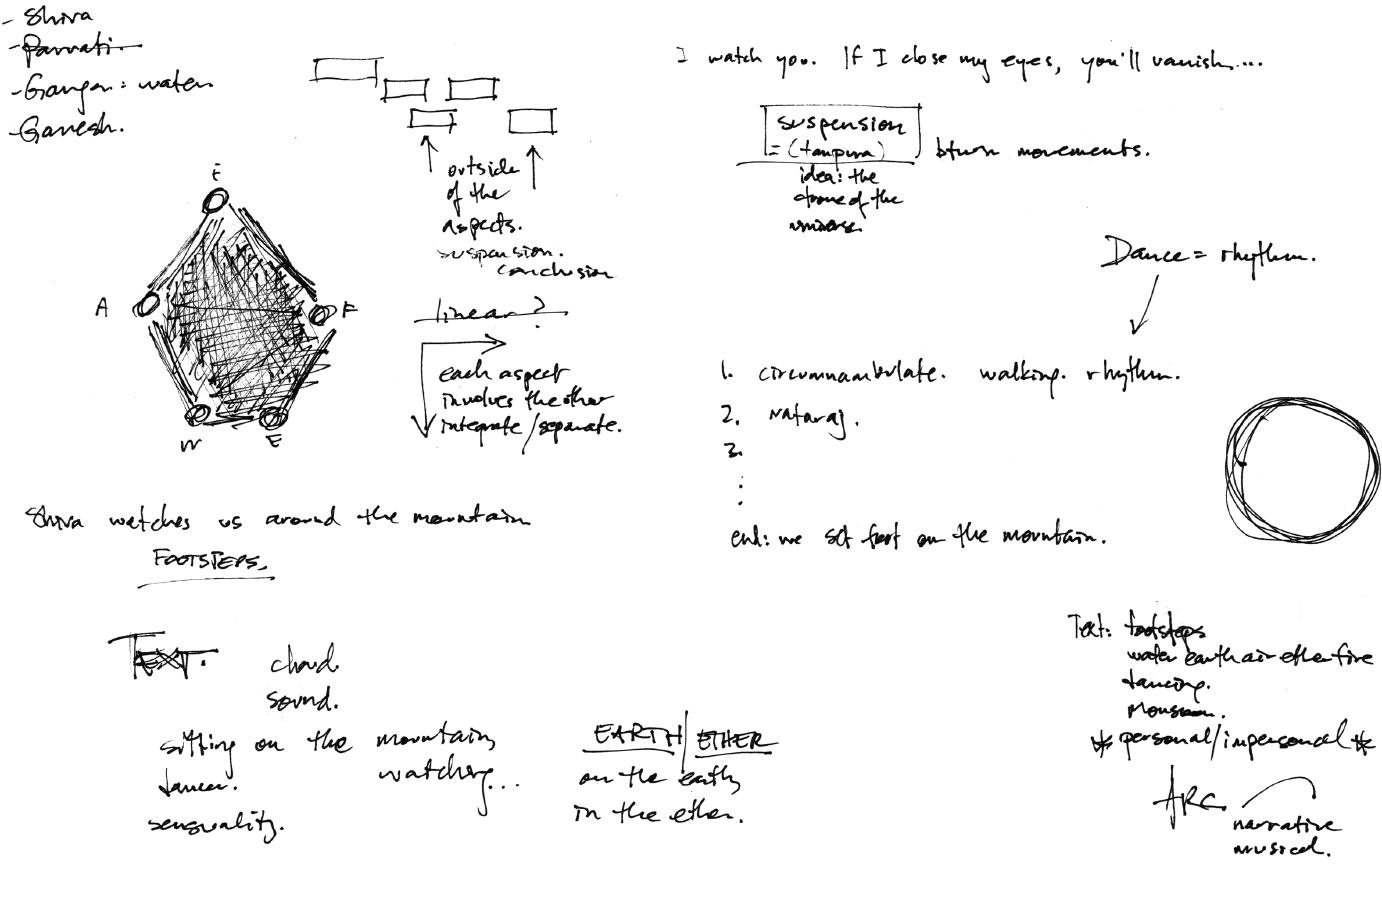 - Shiva
- Parvati.
- Ganga : water
- Ganesh.
I watch you. If I close my eyes, you'll vanish....
suspension
= (tanpura)
btwn movements.
idea: the
drone of the
universe.
outside
of the
aspects.
suspension.
conclusion
linear?
each aspect
involves the other
integrate/separate.
E
A
F
W
E
Dance = rhythm.
1. circumnambulate. walking. rhythm.
2. Nataraj.
3.
end: we set foot on the mountain.
Shiva watches us around the mountain
FOOTSTEPS.
TEXT.
chord
sound.
sitting on the mountain,
watching...
dancer.
sensuality.
EARTH/ETHER
on the earth,
in the ether.
Text: footsteps
water earth air ether fire
dancing.
Monsoon.
* personal/impersonal *
ARC
narrative
musical.